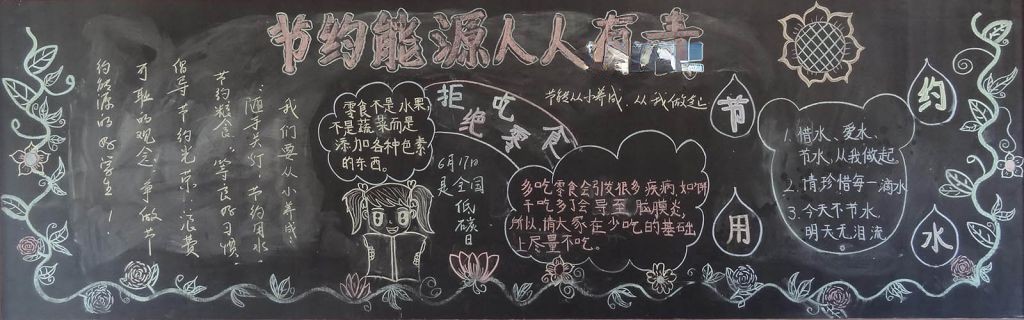 节约能源人人有责
我们要从小养成
“随手关灯”“节约用水”
“节约粮食”等良好习惯，
倡导“节约光荣”“浪费
可耻”的观念，争做“节
约能源的”好学生！
零食不是水果，
不是蔬菜而是
添加各种色素
的东西。
拒绝吃零食
节能从小养成，从我做起
6月17日
是全国
低碳日
多吃零食会引发很多疾病，如饼
干吃多了会导至脑膜炎，
所以，请大家在少吃的基础
上尽量不吃。
节约用水
1. 惜水、爱水、
节水，从我做起。
2. 请珍惜每一滴水
3. 今天不节水，
明天无泪流